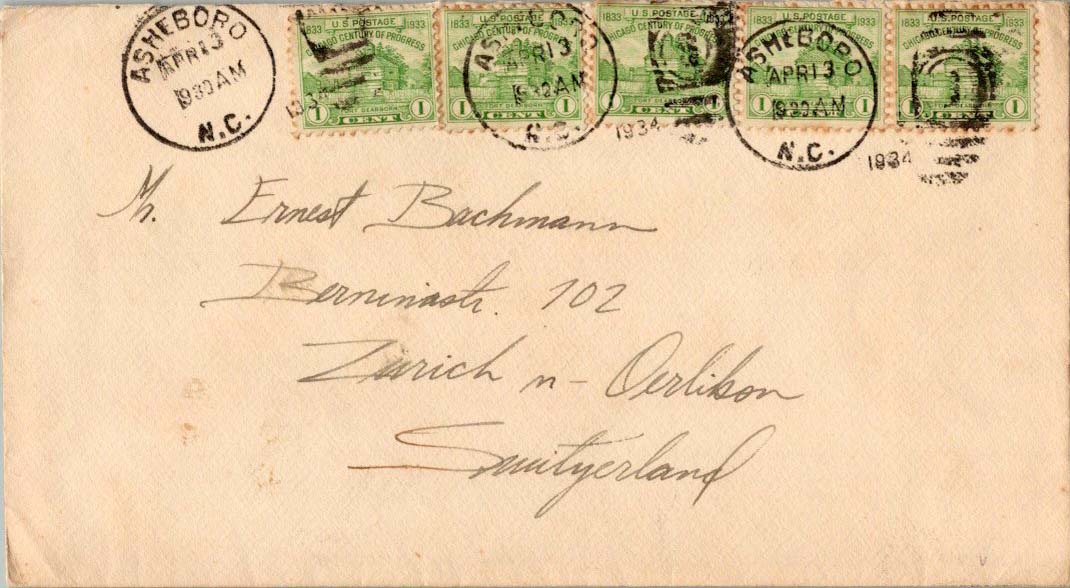 ASHEBORO
APR 13
930 AM
N.C.
1934
U.S. POSTAGE
1833 1933
CHICAGO CENTURY OF PROGRESS
FORT DEARBORN
1 CENT 1
U.S. POSTAGE
1833 1933
CHICAGO CENTURY OF PROGRESS
FORT DEARBORN
1 CENT 1
ASHEBORO
APR 13
930 AM
N.C.
1934
U.S. POSTAGE
1833 1933
CHICAGO CENTURY OF PROGRESS
1 CENT 1
U.S. POSTAGE
1833 1933
1 CENT 1
ASHEBORO
APR 13
930 AM
N.C.
1934
U.S. POSTAGE
1833 1933
CHICAGO CENTURY OF PROGRESS
1 CENT 1
Mr. Ernest Bachmann
Berninastr. 102
Zürich n - Oerlikon
Switzerland